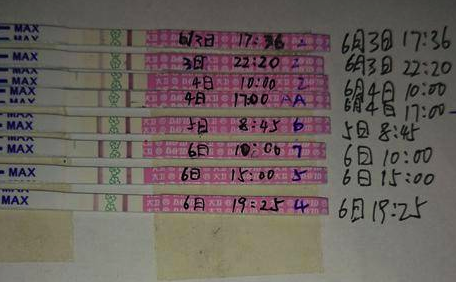 MAX 6月3日 17:36 2 6月3日 17:36
MAX 3日 22:20 2 6月3日 22:20
MAX 4日 10:00 2 6月4日 10:00
MAX 4日 17:00 AA 6月4日 17:00
MAX 5日 8:45 6 5日 8:45
MAX 6日 10:00 7 6日 10:00
MAX 6日 15:00 5 6日 15:00
MAX 6日 19:25 4 6日 19:25